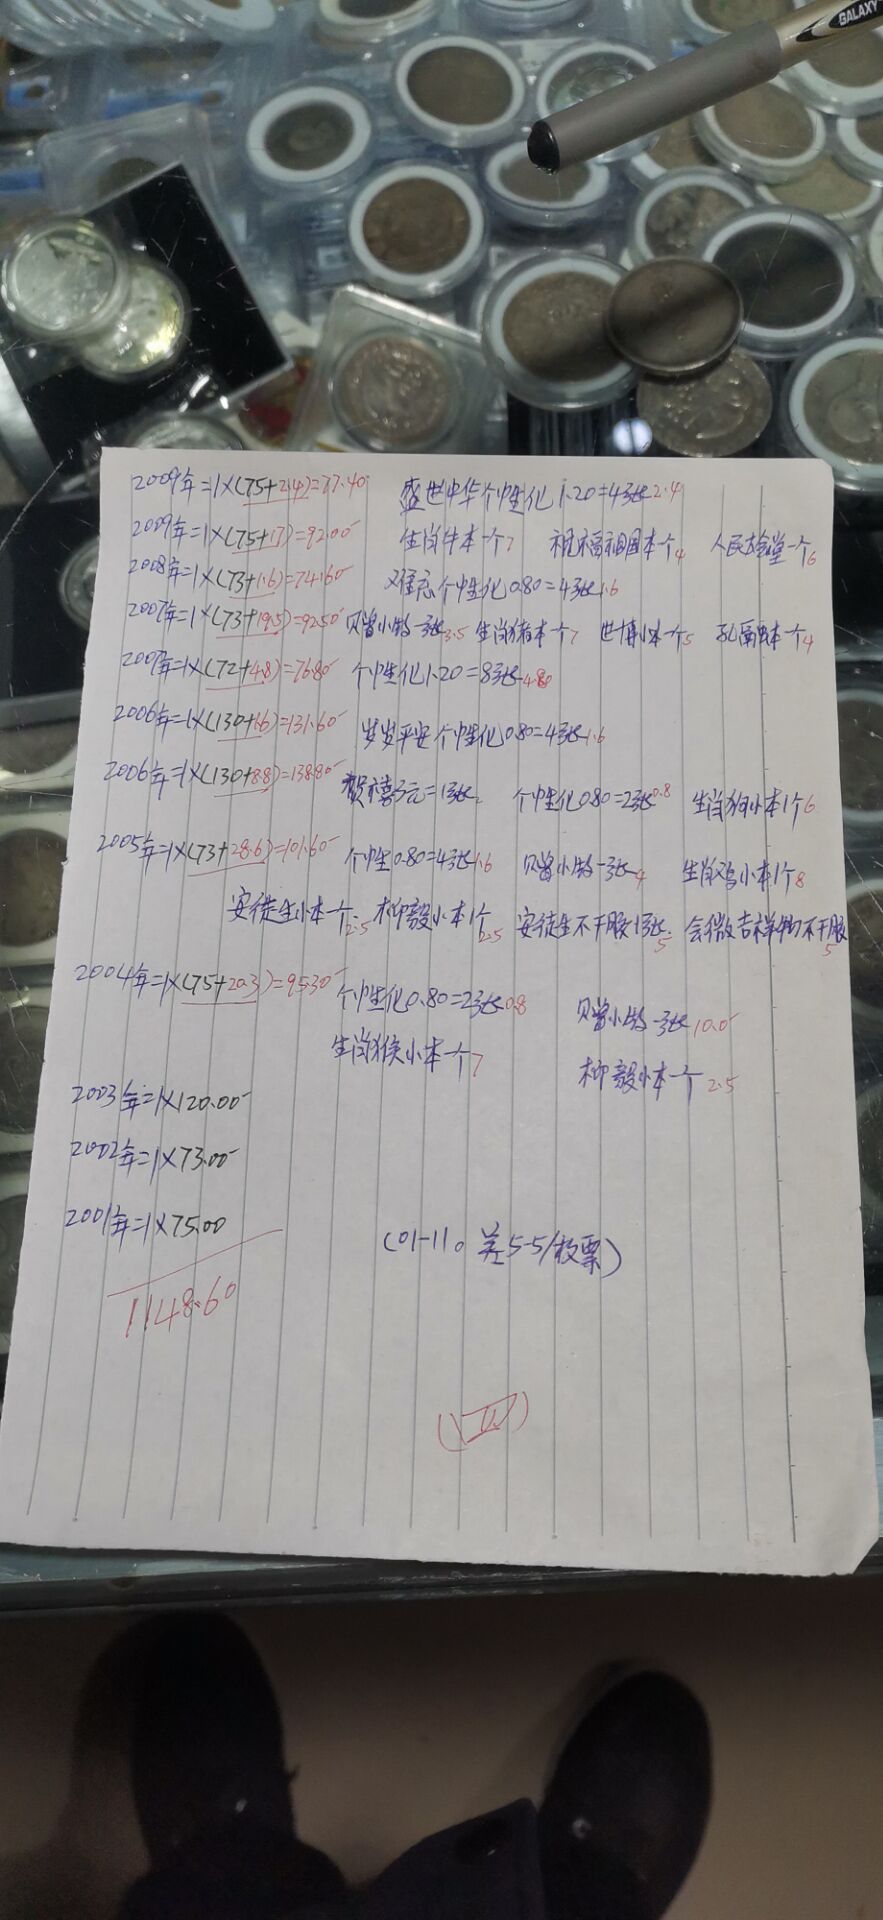 GALAXY
2009年=1×(75+2.4)=77.40 盛世中华个性化1.20=4张2.4
2009年=1×(75+17)=92.00 生肖牛本一个7 祝福祖国本一个4 人民大会堂一个6
2008年=1×(73+1.6)=74.60 个性化0.80=4张1.6
2007年=1×(73+19.5)=92.50 贝曾小版一张3.5 生肖猪本一个7 世博小本一个5 孔融本一个4
2007年=1×(72+4.8)=76.80 个性化1.20=8张4.80
2006年=1×(130+1.6)=131.60 岁岁平安个性化0.80=4张1.6
2006年=1×(130+8.8)=138.80 贺禧3元=1张2 个性化0.80=2张0.8 生肖狗小本1个6
2005年=1×(73+28.6)=101.60 个性0.80=4张1.6 贝曾小版一张4 生肖鸡小本1个8
安徒生小本一个2.5 柳毅小本1个2.5 安徒生不干胶1张5 会徽吉祥物不干胶5
2004年=1×(75+20.3)=95.30 个性化0.80=2张0.8 贝曾小版一张10.0
生肖猴小本一个7 柳毅小本一个2.5
2003年=1×120.00
2002年=1×73.00
2001年=1×75.00 (01-11。差5-5/枚票)
1148.60
(四)